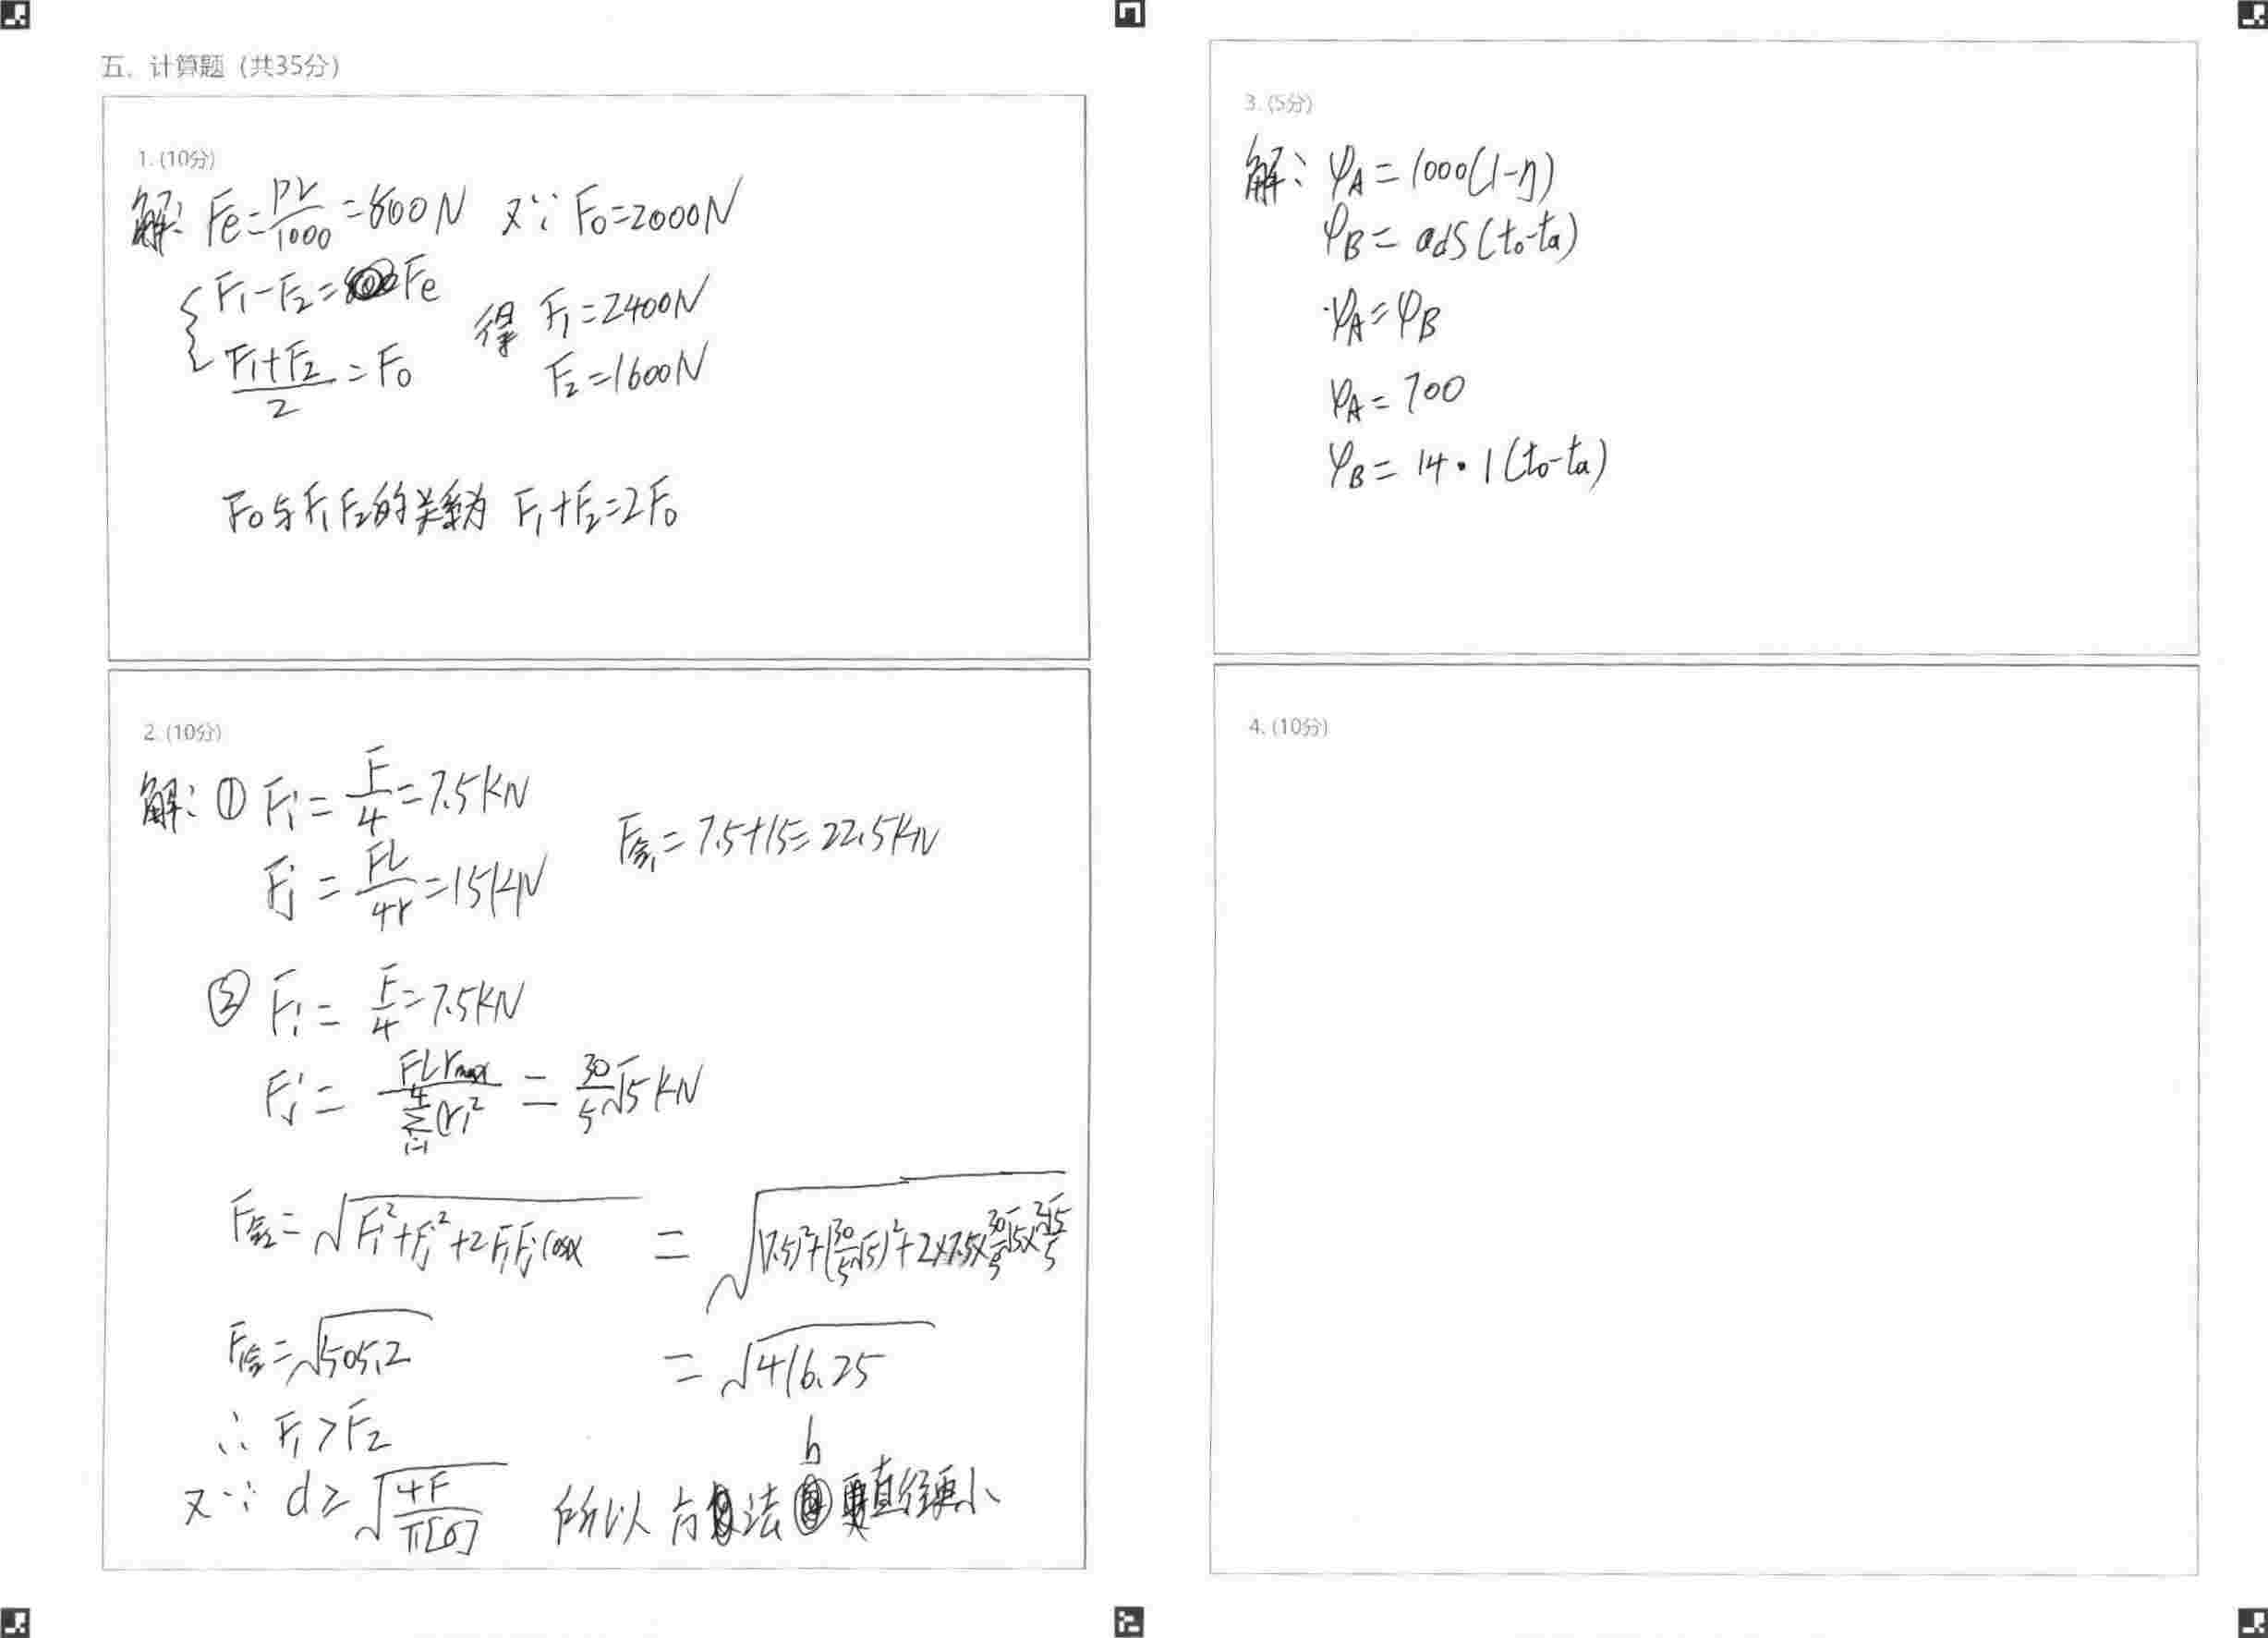 五、计算题 (共35分)
1. (10分)
解: Fe=Pv/1000=800N 又∵ F₀=2000N
{F₁-F₂=Fe
(F₁+F₂)/2=F₀
得 F₁=2400N
F₂=1600N
F₀与F₁F₂的关系为 F₁+F₂=2F₀
2. (10分)
解: ① Fi=F/4=7.5KN
Fj=FL/4r=15KN
F合₁=7.5+15=22.5KN
② Fi=F/4=7.5KN
Fj=FLrmax/∑(i=1→4)(ri²=30/5√5KN
F合₂=√(Fi²+Fj²+2FiFjcosα)=√((7.5)²+(30/5√5)²+2×7.5×30/5√5×2√5/5)
F₁合=√505.2
=√416.25
∴ F₁>F₂
又∵ d≥√(4F/π[σ]) 所以方法b直径更小
3. (5分)
解: φA=1000(1-η)
φB=αdS(t₀-ta)
∴φA=φB
φA=700
φB=14·1(t₀-ta)
4. (10分)